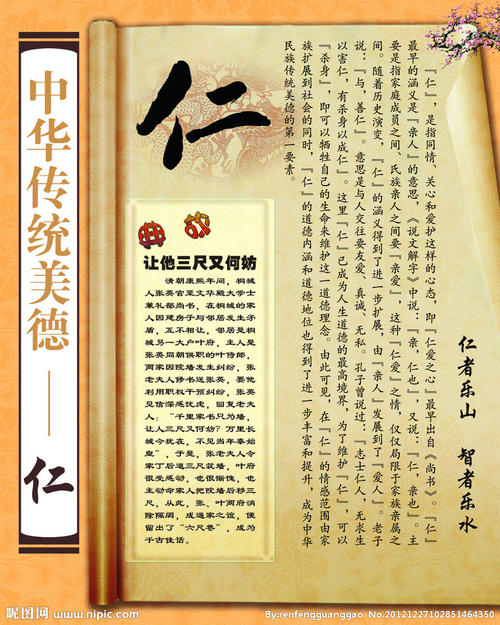 中华传统美德——仁
仁
「仁」，是指同情、关心和爱护这样的心态，即「仁爱之心」最早出自《尚书》。「仁」
最早的涵义是「亲人」的意思，《说文解字》中说：「亲，仁也」，又说：「仁，亲也」。主
要是指家庭成员之间、民族亲人之间要「亲爱」，这种「仁爱」之情，仅仅局限于家族亲属之
间。随着历史演变，「仁」的涵义得到了进一步扩展，由「亲人」发展到了「爱人」。老子
说：「与，善仁」。意思是与人交往要友爱、真诚、无私。孔子曾说过：「志士仁人，无求生
以害仁，有杀身以成仁」。这里「仁」已成为人生道德的最高境界，为了维护「仁」，可以
「杀身」，即可以牺牲自己的生命来维护这一道德理念。由此可见，在「仁」的情感范围由家
族扩展到社会的同时，「仁」的道德内涵和道德地位也得到了进一步丰富和提升，成为中华
民族传统美德的第一要素。
仁者乐山 智者乐水
典故
让他三尺又何妨
清朝康熙年间，桐城
人张英官至文华殿大学士
兼礼部尚书，在桐城的家
人因建房子与邻居发生矛
盾，互不相让，邻居是桐
城另一大户叶府，主人是
张英同朝供职的叶侍郎，
两家因院墙发生纠纷，张
老夫人修书送张英，要他
利用职权干预纠纷，张英
见信深感忧虑，回复老夫
人：“千里家书只为墙，
让人三尺又何妨？万里长
城今犹在，不见当年秦始
皇”，于是，张老夫人令
家丁后退三尺筑墙，叶府
很受感动，也很惭愧，也
主动命家人把院墙后移三
尺，从此，张、叶两府消
除隔阂，成通家之谊，便
留出了“六尺巷”，成为
千古佳话。
昵图网 www.nipic.com
By:renfengguanggao No.20121227102851464350